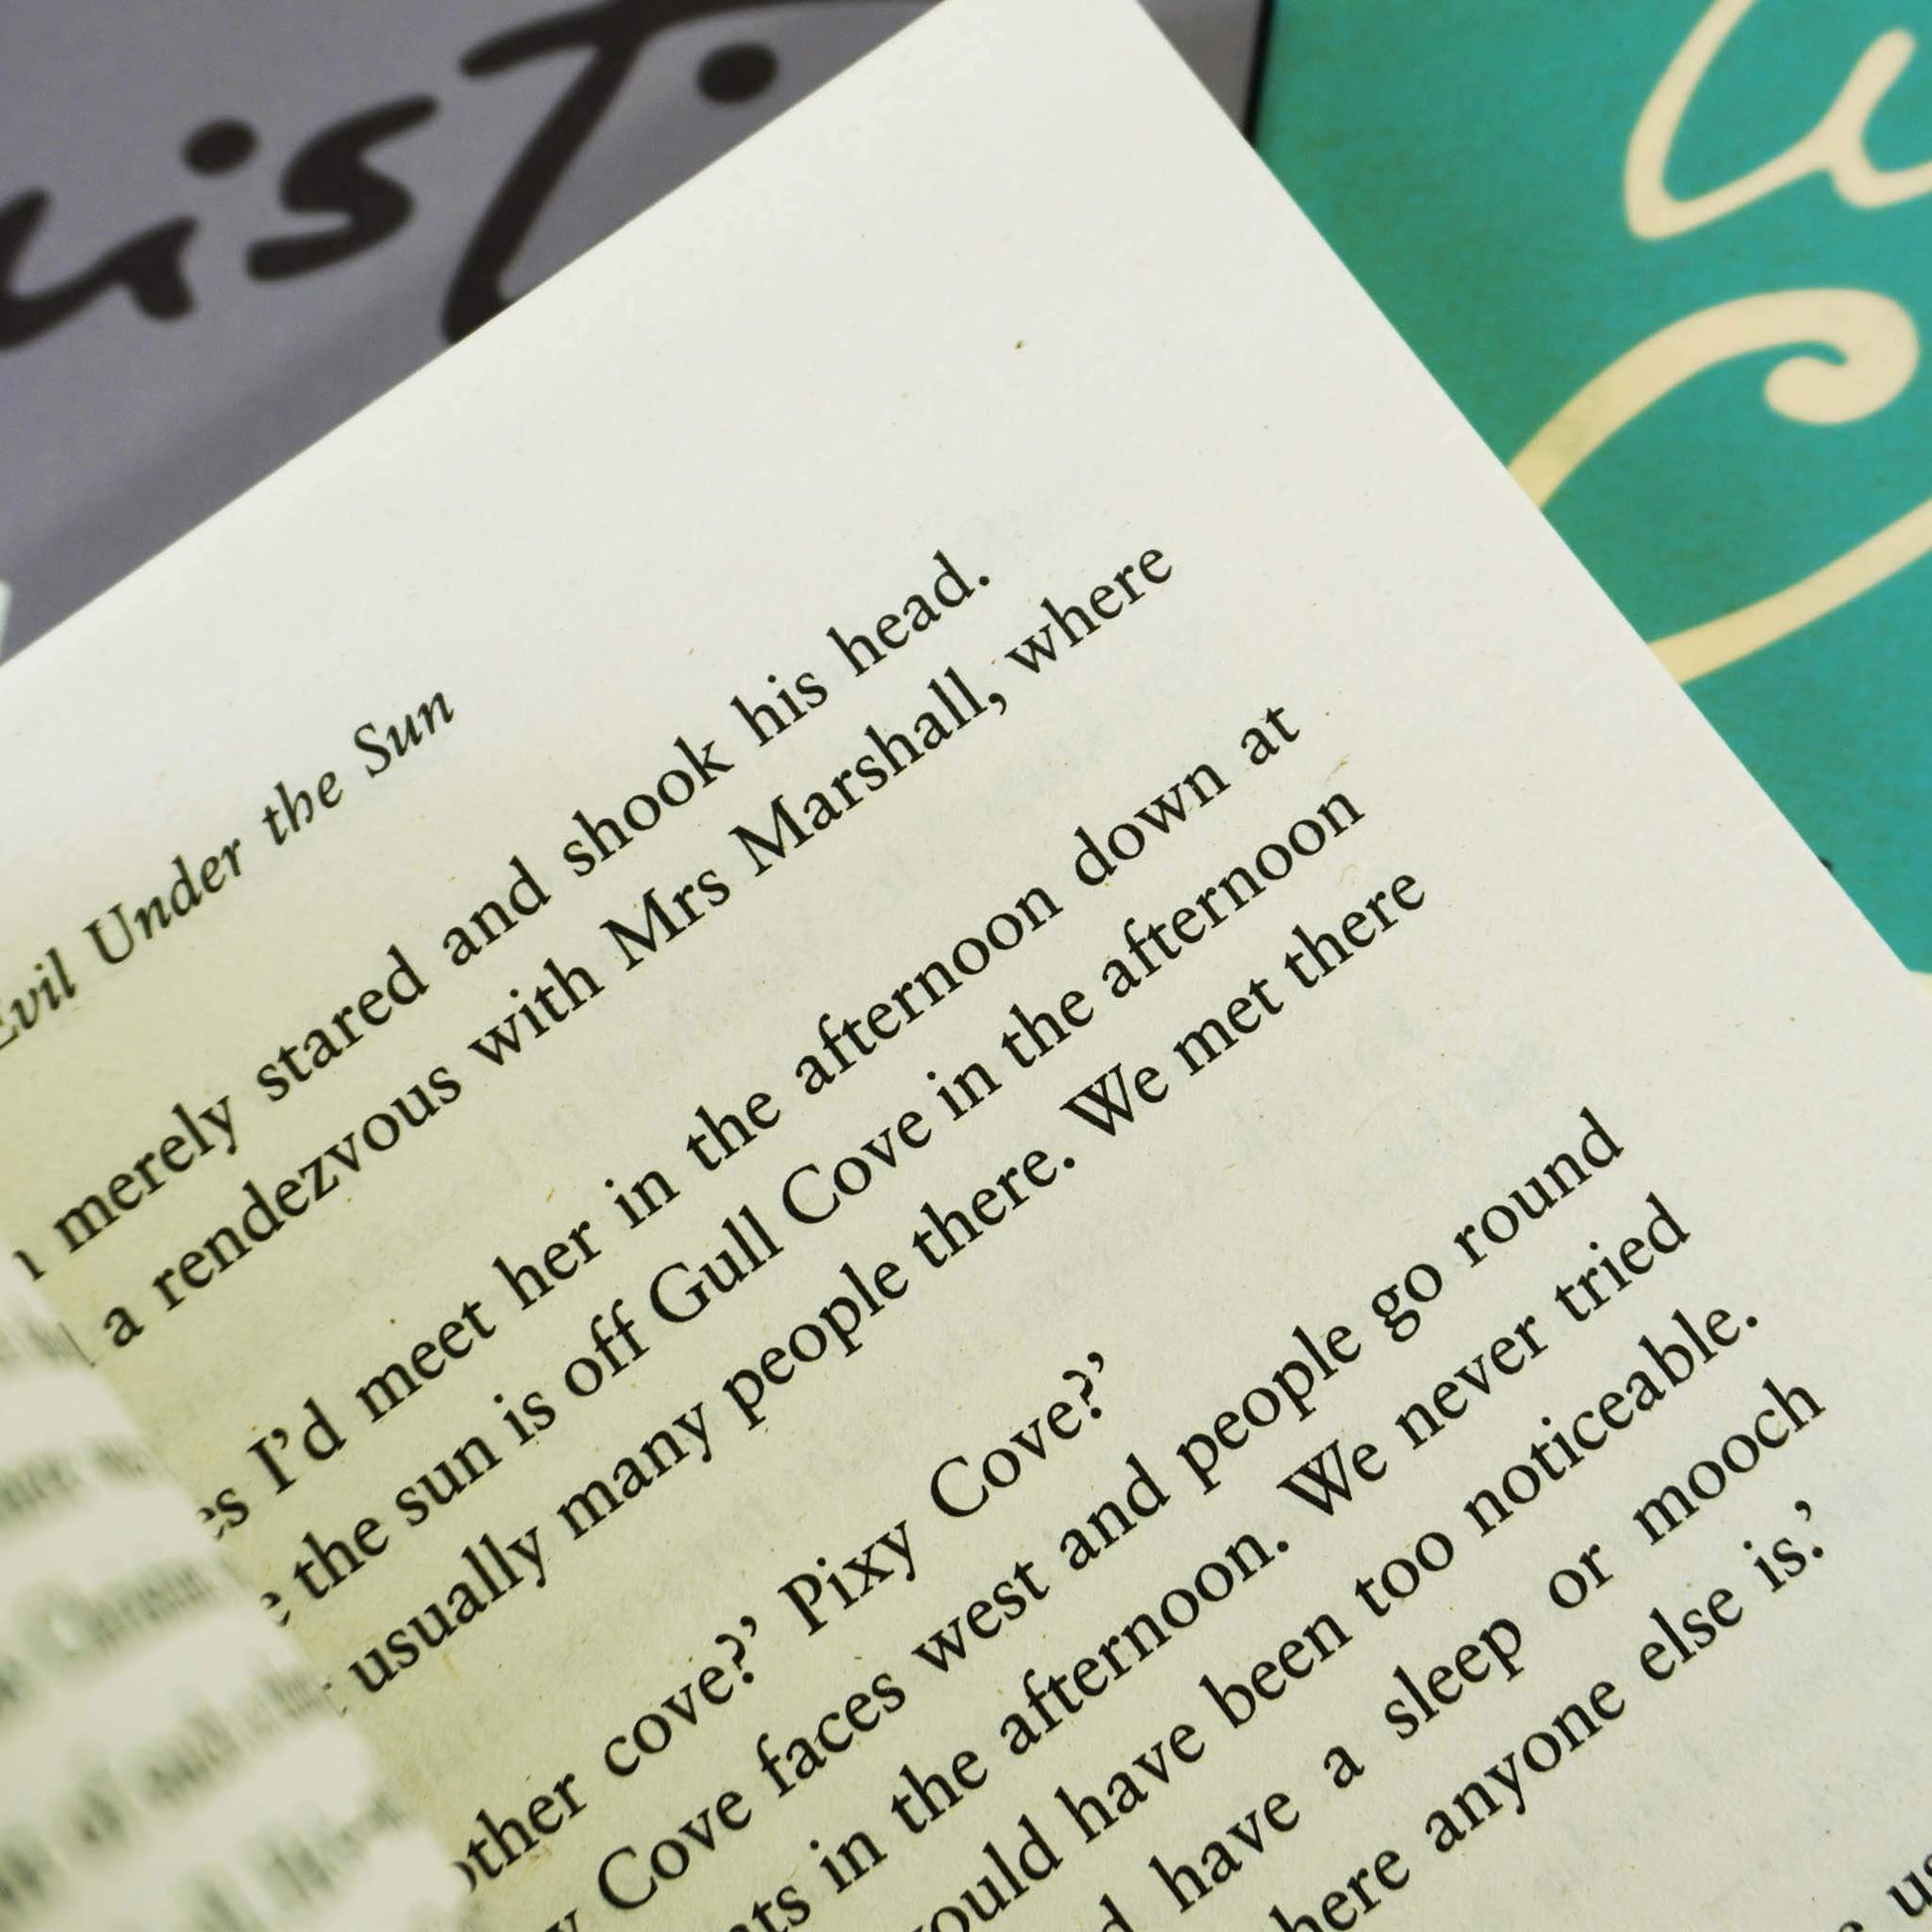 Evil Under the Sun
merely stared and shook his head.
a rendezvous with Mrs Marshall, where
I'd meet her in the afternoon down at
the sun is off Gull Cove in the afternoon
usually many people there. We met there
other cove?' Pixy Cove?'
Cove faces west and people go round
in the afternoon. We never tried
would have been too noticeable.
have a sleep or mooch
where anyone else is.'